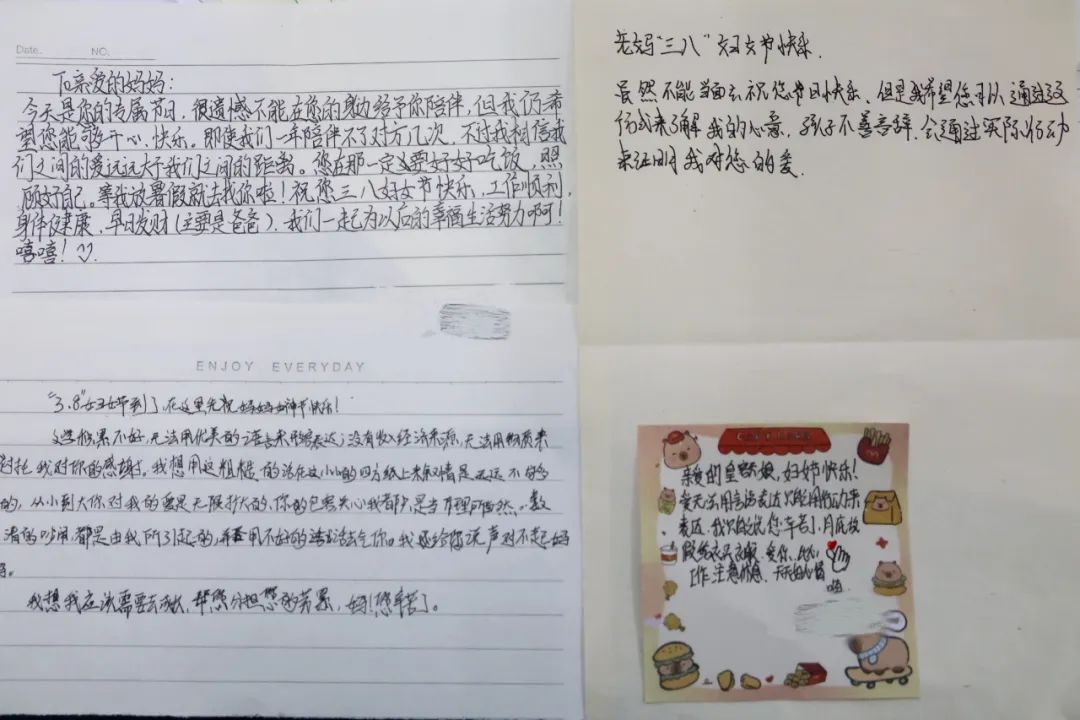 Date. NO.
亲爱的妈妈:
今天是你的专属节日,很遗憾不能在您的身边给予你陪伴,但我仍希
望您能够开心、快乐。即使我们一年陪伴不了对方几次,不过我相信我
们之间的爱远远大于我们之间的距离。您在那一定要好好吃饭,照
顾好自己。等我放暑假就去找你啦!祝您三八妇女节快乐,工作顺利,
身体健康,早日发财(主要是爸爸),我们一起为以后的幸福生活努力啊!
嘻嘻!
ENJOY EVERYDAY
"3.8"妇女节到了,在这里先祝妈妈女神节快乐!
文学积累不好,无法用优美的语言来表达;没有收入经济来源,无法用物质来
衬托我对你的感谢。我想用这粗糙的话在这小小的四方纸上来是远远不够
的,从小到大你对我的爱是无限扩大的,你的包容关心我都是当作理所当然。数
清的吵闹都是由我所引起的,用不好的话语去气你。我想给您说声对不起妈
妈。
我想我应该需要去成长,帮您分担您的劳累,妈!您辛苦了。
老妈"三八"妇女节快乐.
虽然不能当面去祝您节日快乐、但是我希望您可以通过这
份式来了解我的心意,孩子不善言辞,会通过实际行动
来证明我对您的爱.
亲爱的皇额娘,妇女节快乐!
爱无法用言语表达只能用行动来
表达,我只能说您辛苦了,月底放
假给衣服,爱你,
工作注意休息,天天开心
哟